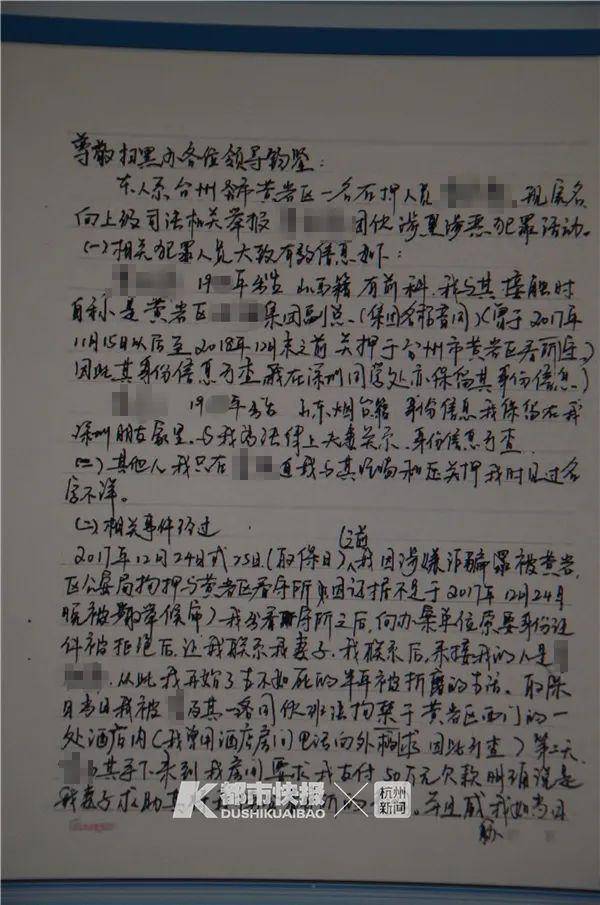 尊敬扫黑办各位领导钧鉴：
本人系台州市黄岩区一名在押人员 现实名
向上级司法相关举报 团伙涉黑涉恶犯罪活动。
(一)相关犯罪人员大致有效信息如下：
19 年出生 山西籍 有前科，我与其接触时
自称是黄岩区 集团副总、(集团名称音同)(曾于2017年
11月15日以后至2018年12月末之前关押于台州市黄岩区看守所，
因此其身份信息可查，我在深圳同居处亦保留其身份信息)
19 年出生 山东烟台籍 身份信息我保留在我
深圳朋友家里，与我为法律上夫妻关系，身份信息可查
(二)其他人我只在 逼我与其 和正关押我时见过名
字不详。
(二)相关事件经过
2017年12月24日或25日(取保日)之前，我因涉嫌诈骗罪被黄岩
区公安局拘押与黄岩区看守所(因证据不足于2017年12月24日
晚被 候审)我出看守所之后，向办案单位索要身份证
件被拒绝后，让我联系我妻子，我联系后，来接我的人是
，从此我开始了生不如死的半年被折磨的生活。取保
日当日我被 及其一路同伙非法拘禁于黄岩区西门的一
处酒店内(我曾用酒店房间电话向外 求 因此可查)第二天，
及其手下来到我房间要求我支付50万元欠款明确说是
我妻子求助其 。并且威 我如当日
都市快报 × 杭州新闻
DUSHIKUAIBAO